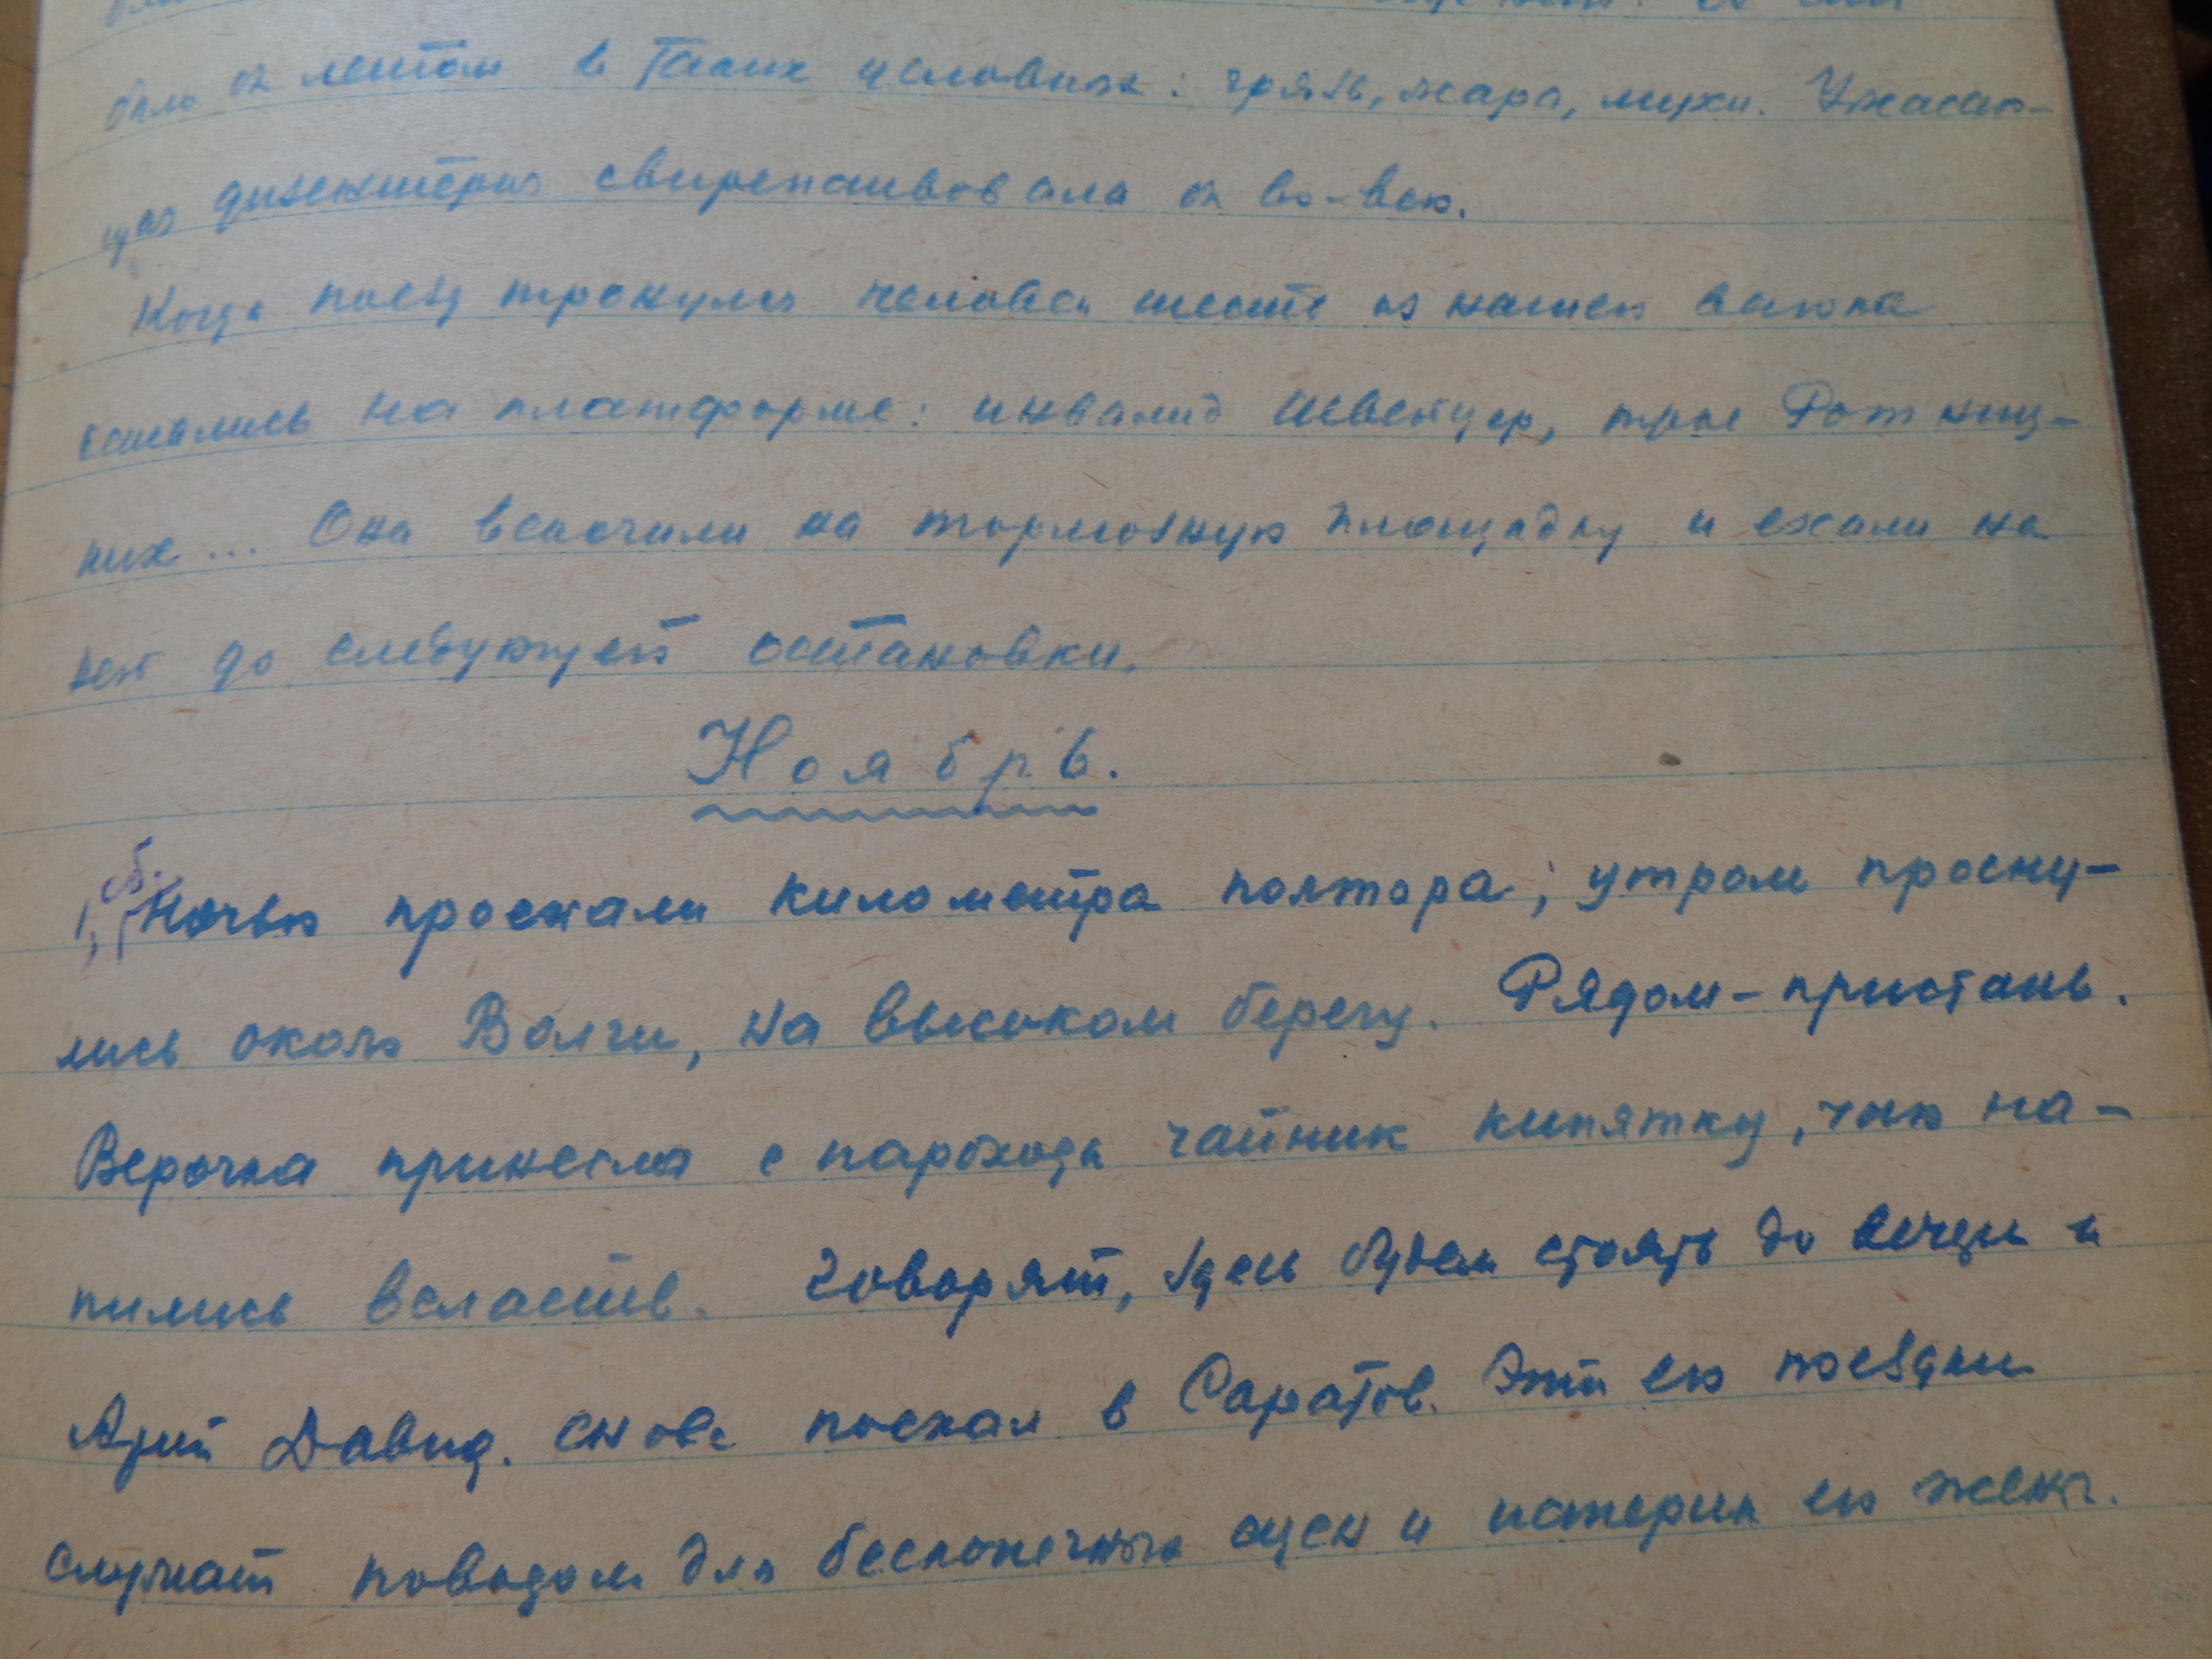 было б летом в таких условиях: грязь, жара, мухи. Ужасаю-
щая дизентерия свирепствовала б во-всю.
Когда поезд тронулся человек шесть из нашего вагона
остались на платформе: инвалид Швейцер, трое Роткиц-
ких... Они вскочили на тормозную площадку и ехали на
ней до следующей остановки.
Ноябрь.
1, сб. Ночью проехали километра полтора; утром просну-
лись около Волги, на высоком берегу. Рядом-пристань.
Верочка принесла с парохода чайник кипятку, чаю на-
пились всласть. Говорят, здесь будем стоять до вечера и
Арий Давид. снова поехал в Саратов. Эти его поездки
служат поводом для бесконечных сцен и истерик его жены.